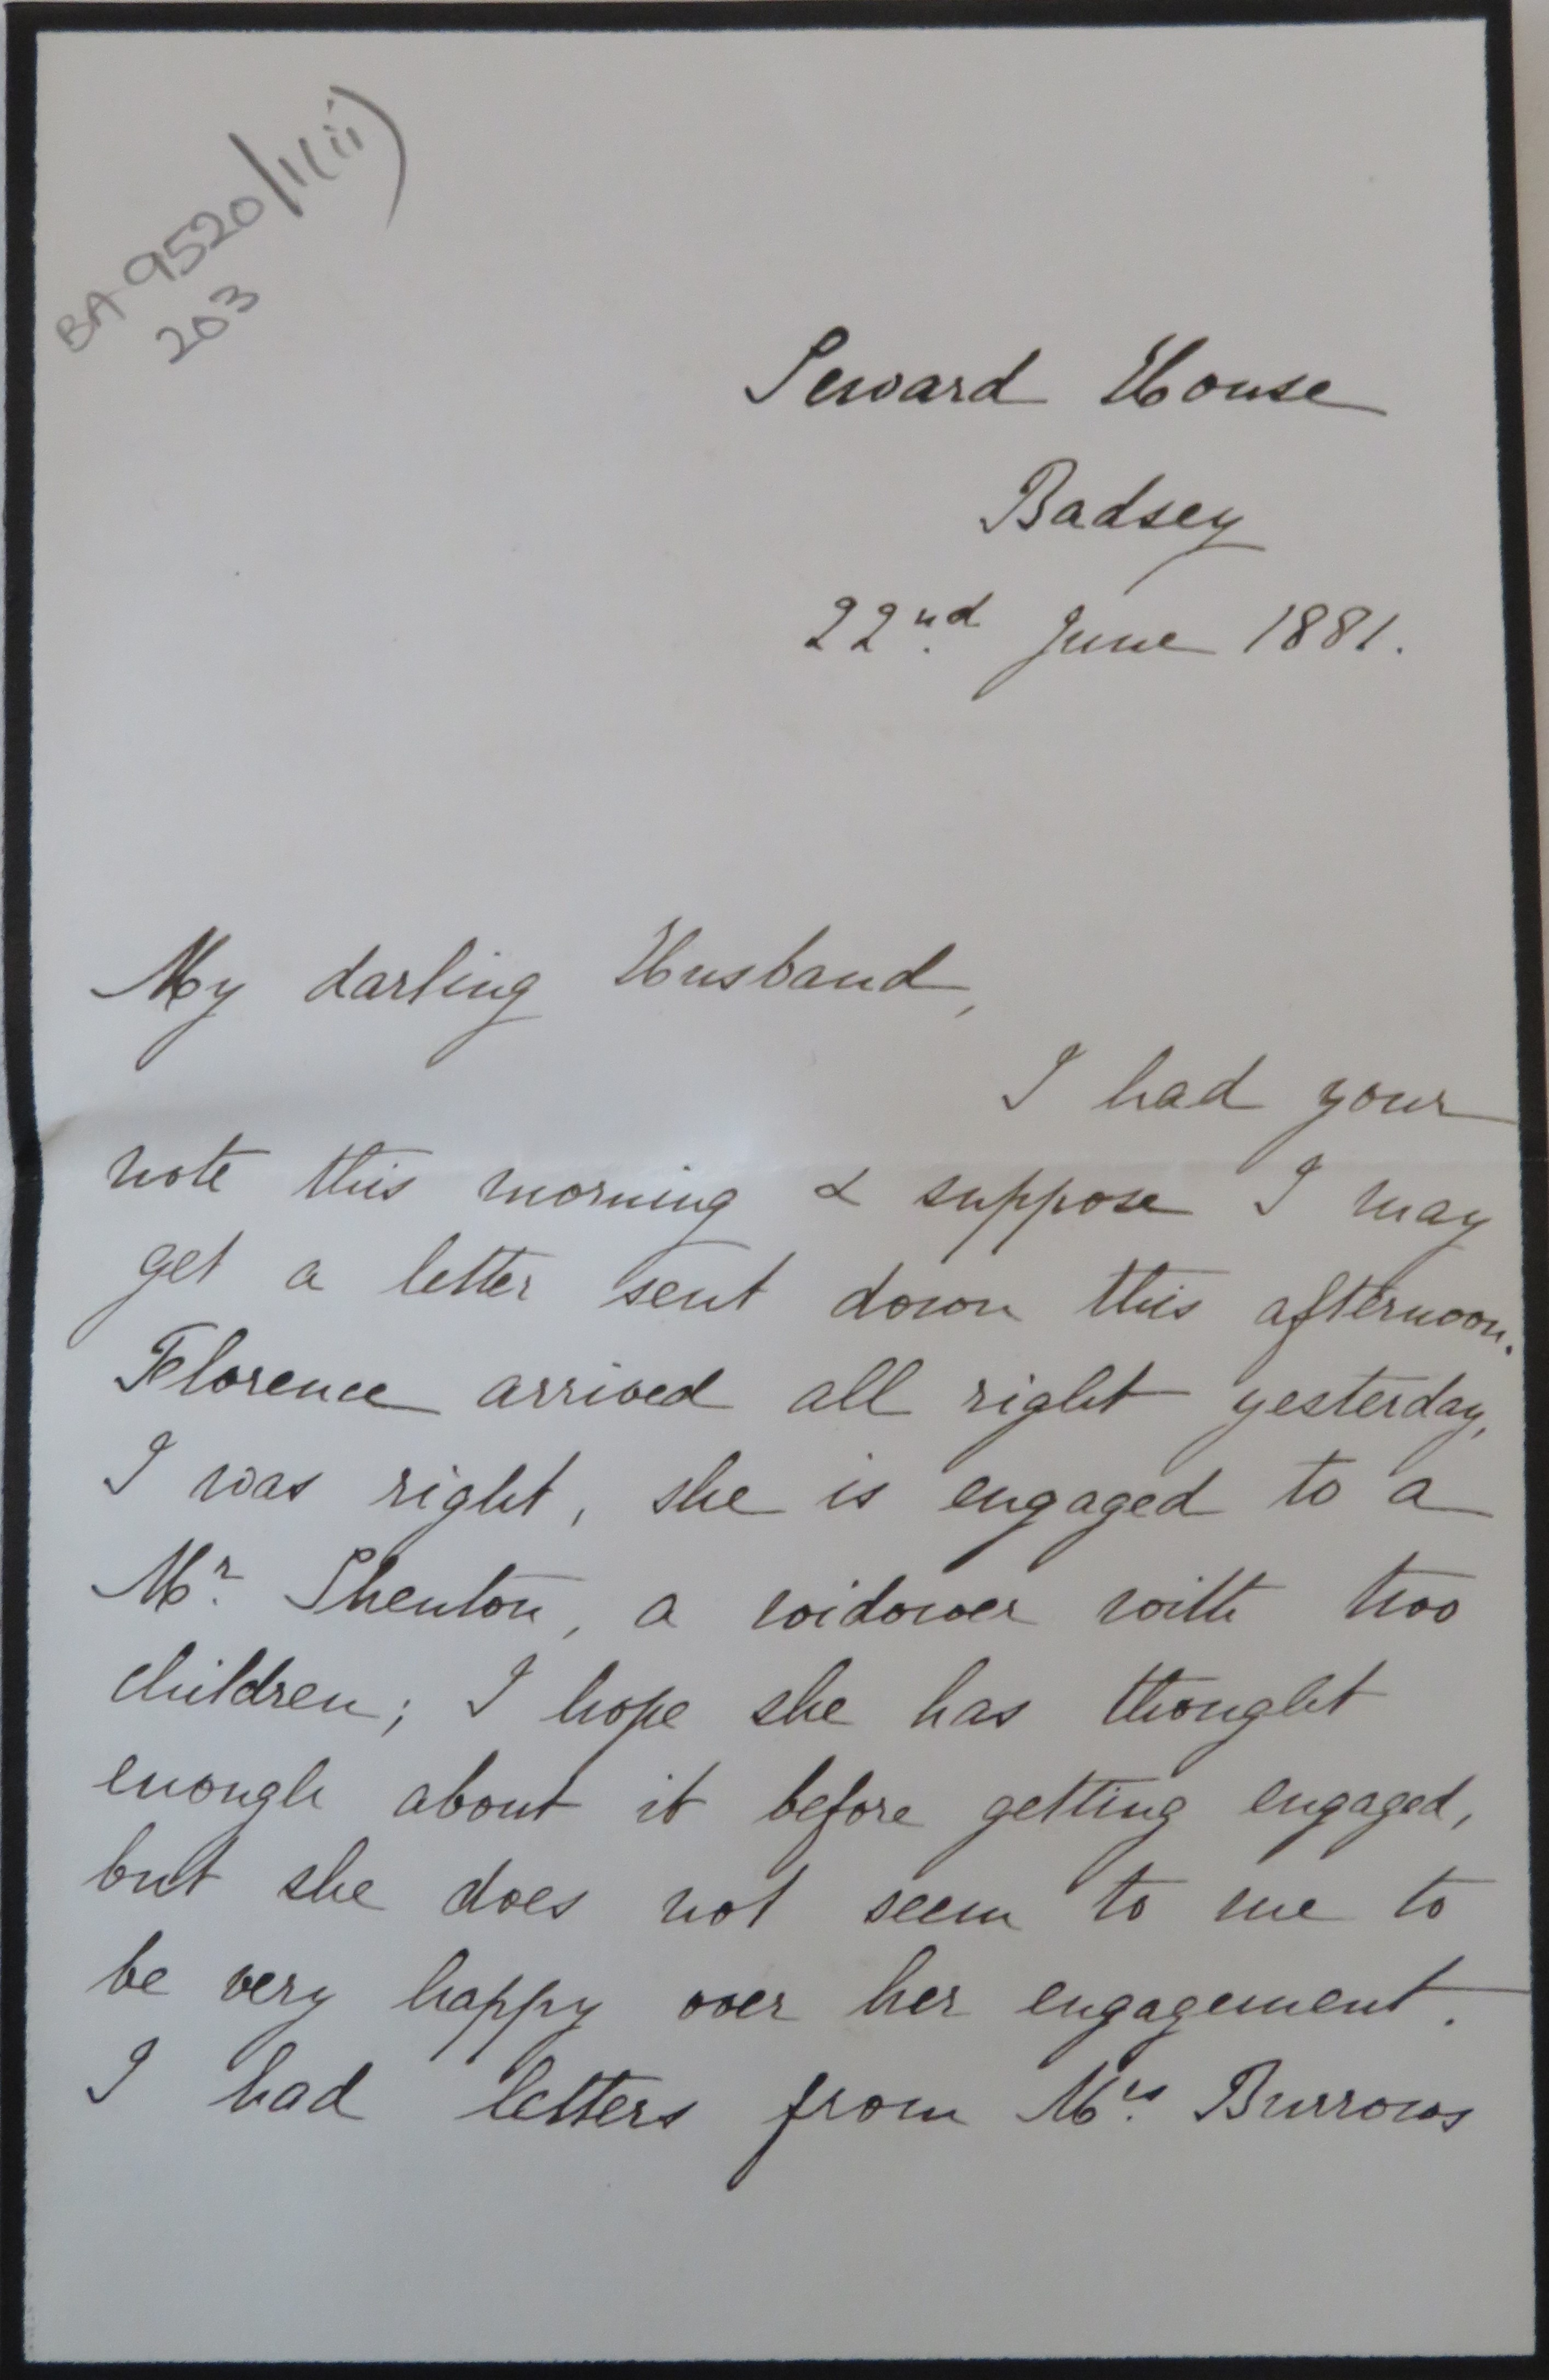 BA 9520/1(ii)
203
Seward House
Badsey
22nd. June 1881.
My darling Husband,
I had your
note this morning & suppose I may
get a letter sent down this afternoon.
Florence arrived all right yesterday,
I was right, she is engaged to a
Mr. Shenton, a widower with two
children; I hope she has thought
enough about it before getting engaged,
but she does not seem to me to
be very happy over her engagement.
I had letters from Mrs. Burrows